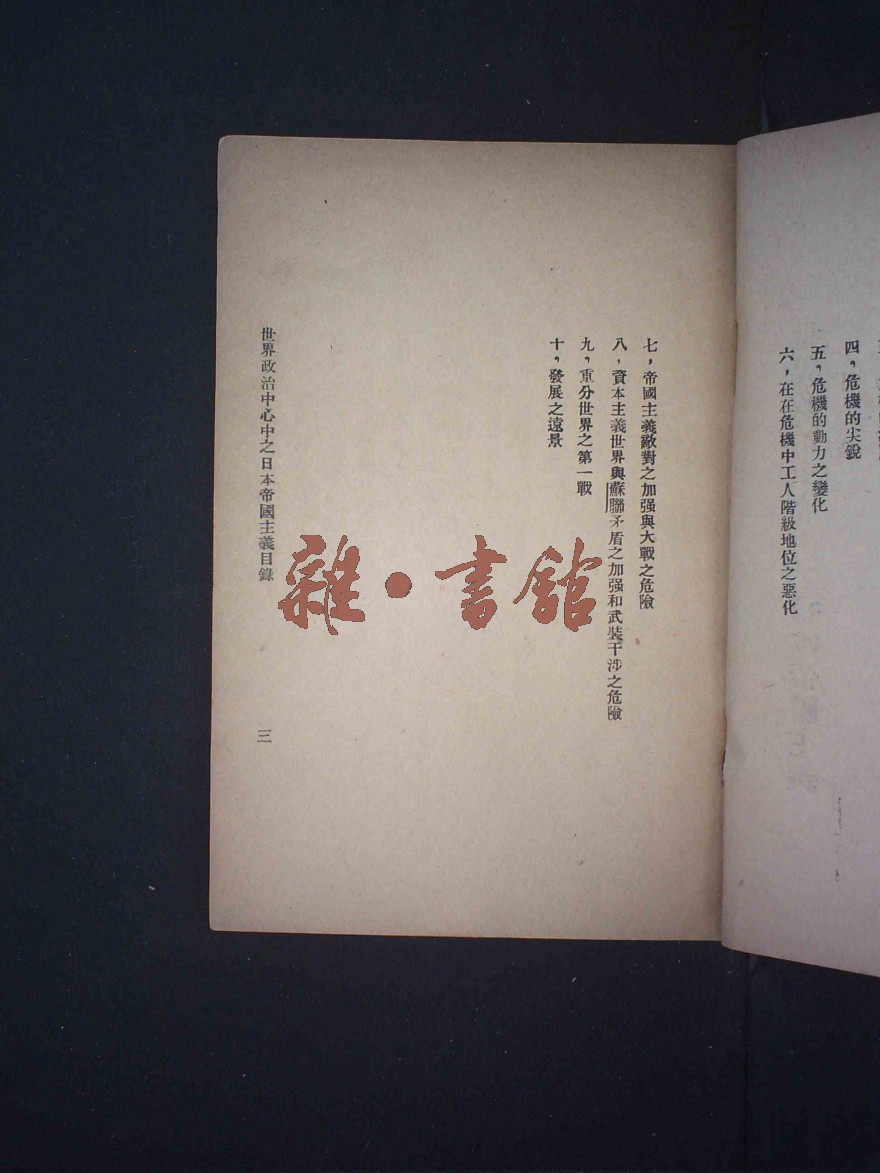 四，危機的尖銳
五，危機的動力之變化
六，在在危機中工人階級地位之惡化
七，帝國主義敵對之加强與大戰之危險
八，資本主義世界與蘇聯矛盾之加强和武裝干涉之危險
九，重分世界之第一戰
十，發展之遠景
世界政治中心中之日本帝國主義目錄
三
雜·書館